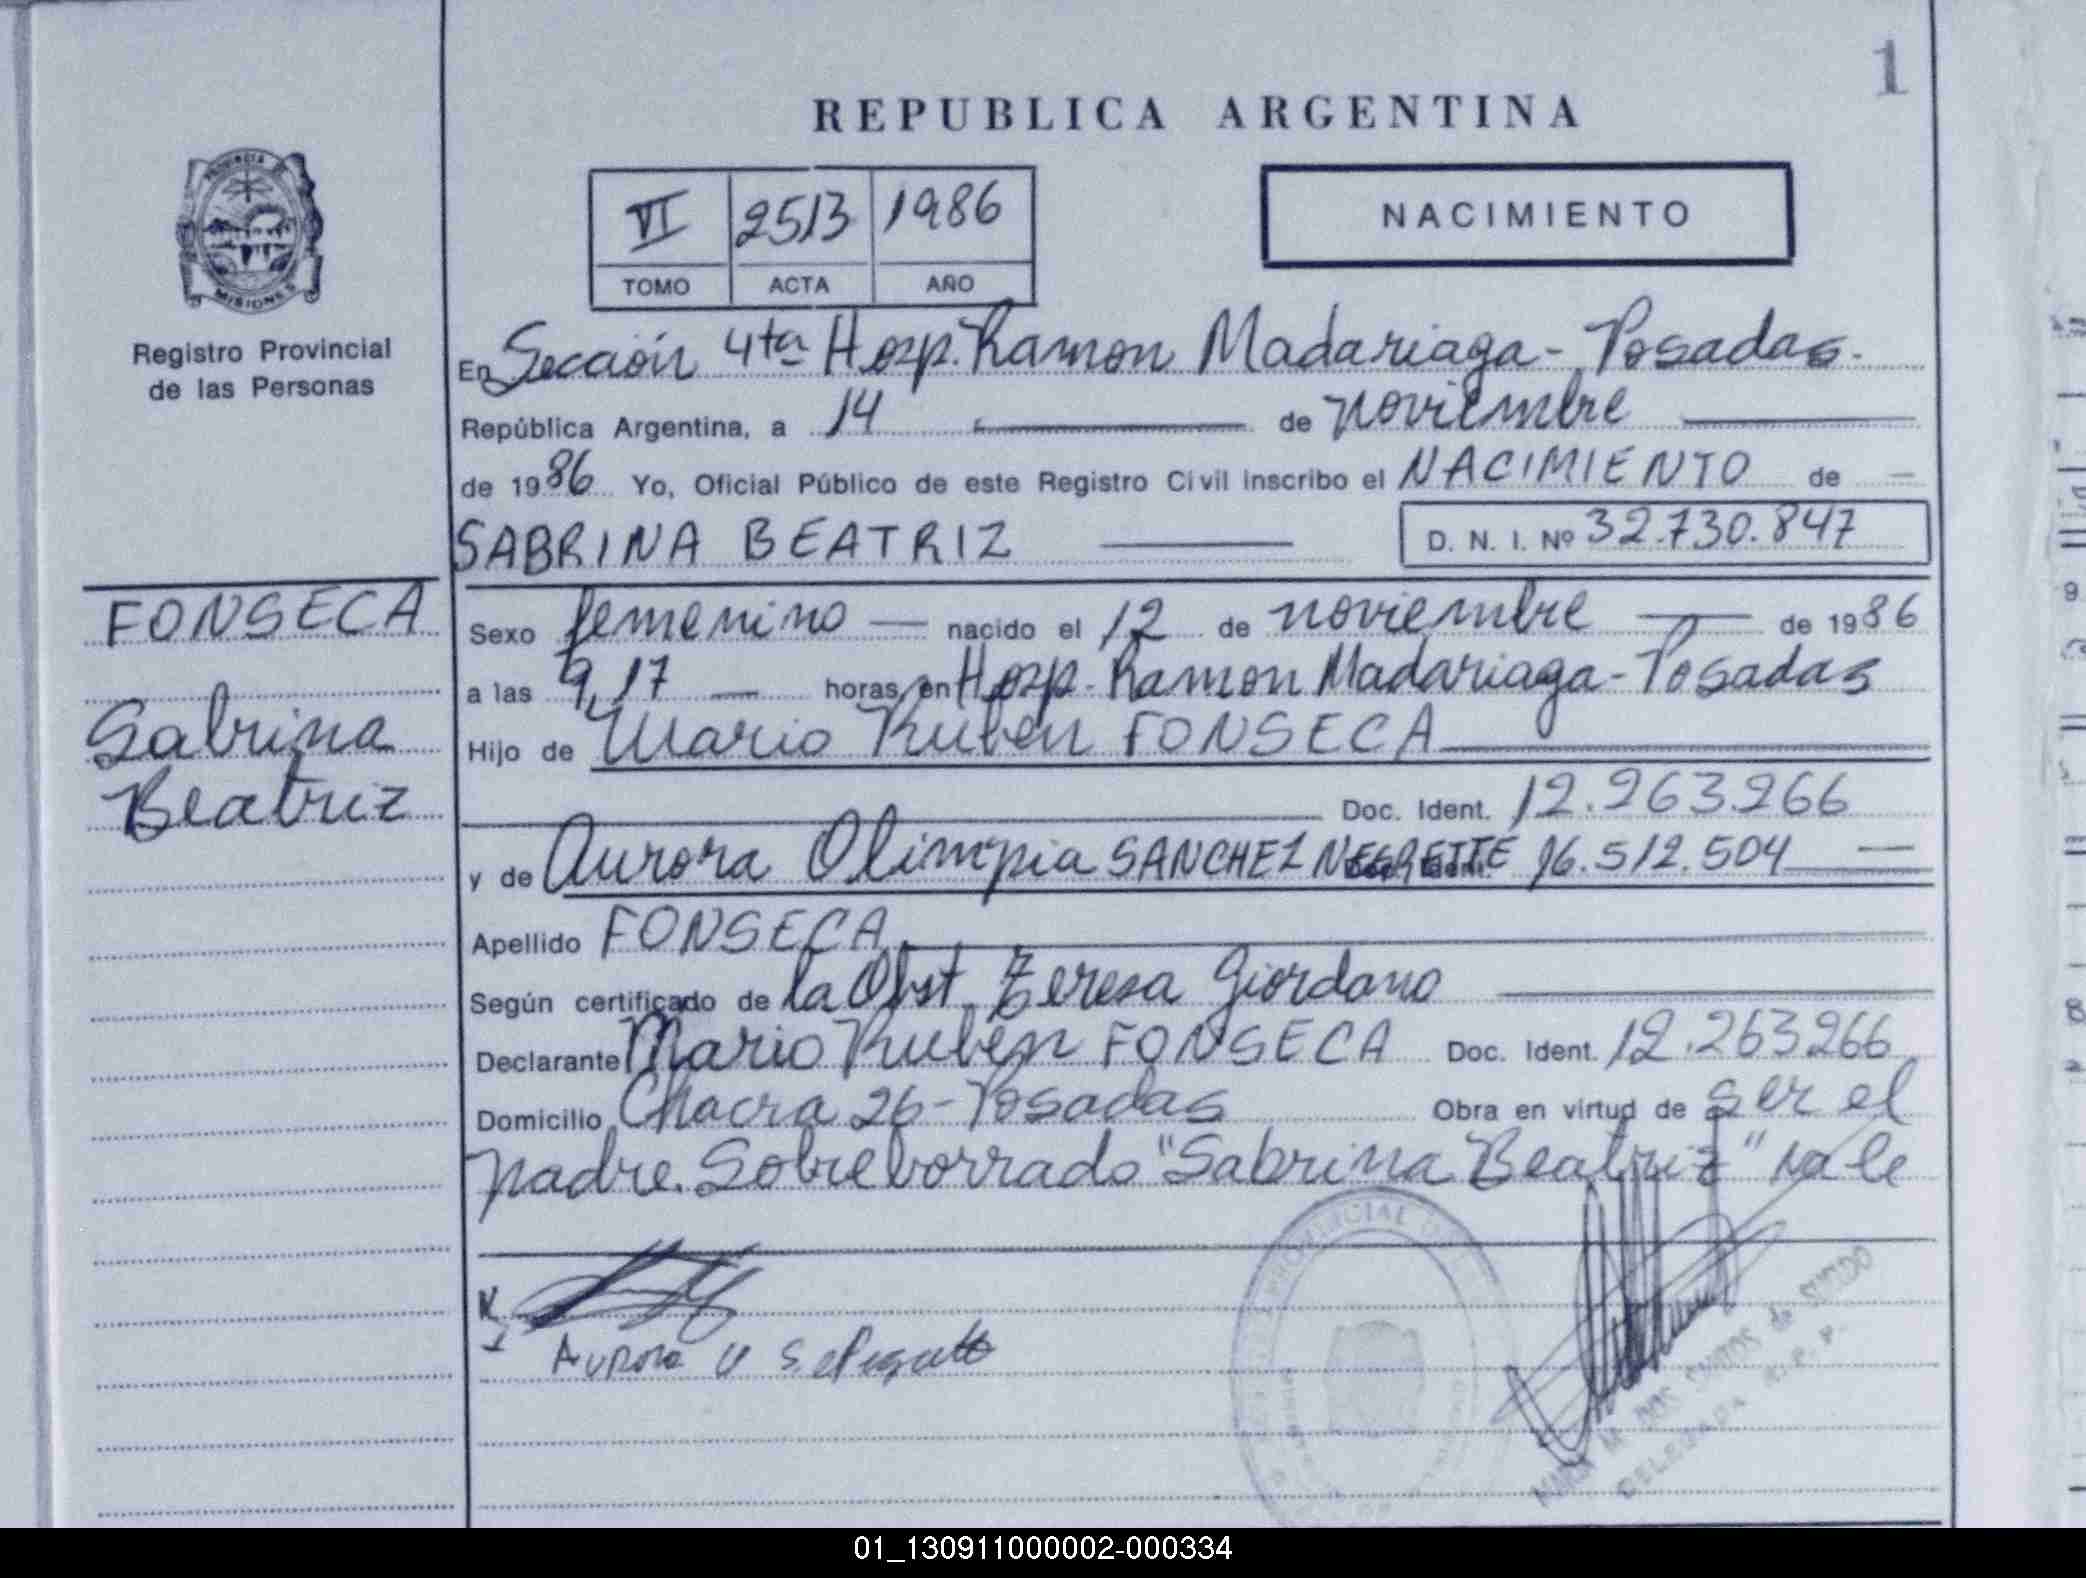 1
REPUBLICA ARGENTINA
PROVINCIA DE
MISIONES
VI 2513 1986
TOMO ACTA AÑO
NACIMIENTO
Registro Provincial
de las Personas
En Sección 4ta Hosp. Ramon Madariaga - Posadas.
República Argentina, a 14 de noviembre
de 1986 Yo, Oficial Público de este Registro Civil inscribo el NACIMIENTO de
SABRINA BEATRIZ D. N. I. Nº 32.730.847
FONSECA
Sabrina
Beatriz
Sexo femenino nacido el 12 de noviembre de 1986
a las 9,17 horas en Hosp. Ramon Madariaga - Posadas
Hijo de Mario Ruben FONSECA
Doc. Ident. 12.263.266
y de Aurora Olimpia SANCHEZ NEGRETTE 16.512.504
Apellido FONSECA
Según certificado de la Obst. Teresa Giordano
Declarante Mario Rubén FONSECA Doc. Ident. 12.263266
Domicilio Chacra 26 - Posadas Obra en virtud de ser el
padre. Sobreborrado "Sabrina Beatriz" vale
Aurora
DOS SANTOS de
DELEGADA R. P. P.
01_130911000002-000334